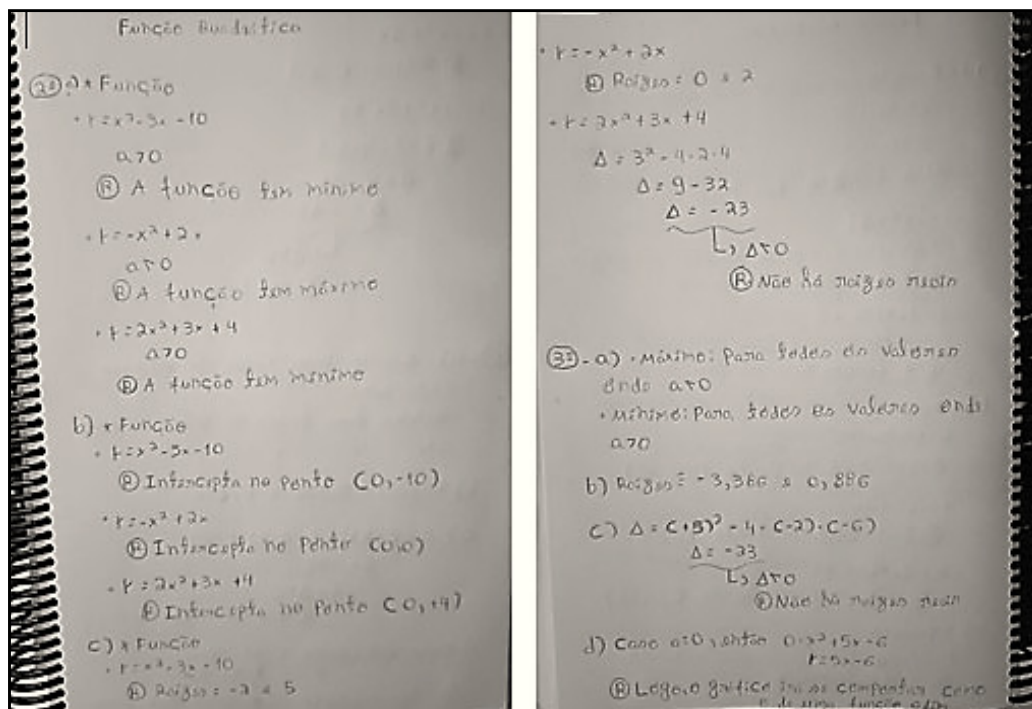 Função Quadrática
2ª) a * Função
• y = x² - 3x - 10
a > 0
Ⓡ A função tem mínimo
• y = -x² + 2x
a < 0
Ⓡ A função tem máximo
• y = 2x² + 3x + 4
a > 0
Ⓡ A função tem mínimo
b) * Função
• y = x² - 3x - 10
Ⓡ Intercepta no ponto (0, -10)
• y = -x² + 2x
Ⓡ Intercepta no Ponto (0,0)
• y = 2x² + 3x + 4
Ⓡ Intercepta no Ponto (0, +4)
c) * Função
• y = x² - 3x - 10
Ⓡ Raízes = -2 e 5
• y = -x² + 2x
Ⓡ Raízes = 0 e 2
• y = 2x² + 3x + 4
Δ = 3² - 4 · 2 · 4
Δ = 9 - 32
Δ = -23
↳ Δ < 0
Ⓡ Não há raízes reais
3ª - a) • Máximo: Para todos os valores
onde a < 0
• Mínimo: Para todos os valores onde
a > 0
b) Raízes = -3,386 e 0,886
c) Δ = (+5)² - 4 · (-2) · (-6)
Δ = -23
↳ Δ < 0
Ⓡ Não há raízes reais
d) Caso a=0, então 0·x² + 5x - 6
y = 5x - 6
Ⓡ Logo, o gráfico irá se comportar como
o de uma função afim